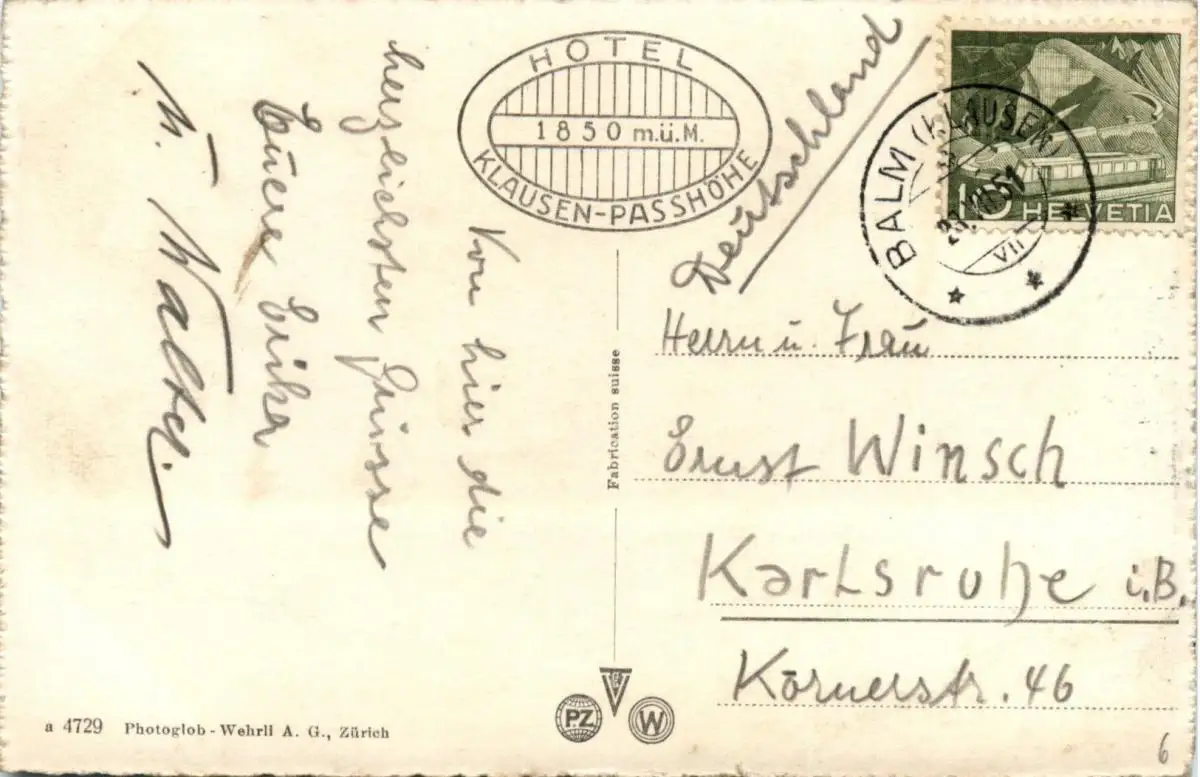 HOTEL
1850 m.ü.M.
KLAUSEN-PASSHÖHE
Von hier die
herzlichsten Grüsse
Euere Erika
u. Walter.
HELVETIA
BALM (KLAUSEN)
VII
Deutschland
Herrn u. Frau
Ernst Winsch
Karlsruhe i.B.
Körnerstr. 46
Fabrication suisse
PZ
W
a 4729 Photoglob-Wehrli A. G., Zürich
6